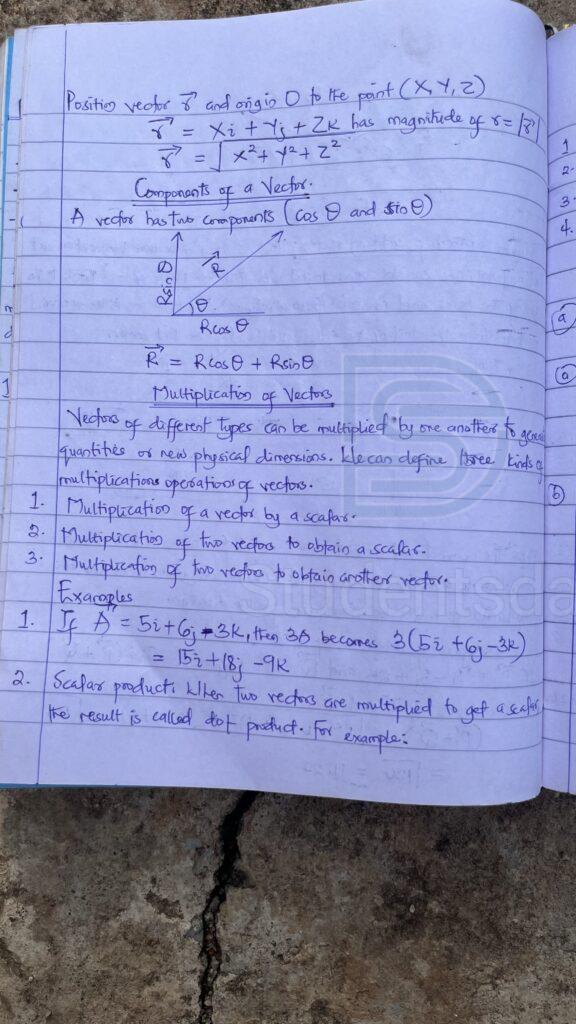 Position vector r⃗ and origin O to the point (X, Y, Z)
r⃗ = Xi + Yj + Zk has magnitude of r = |r⃗|
r⃗ = √X² + Y² + Z²
Components of a Vector.
A vector has two components (cos θ and sin θ)
R⃗
Rsin θ
θ
Rcos θ
R⃗ = Rcosθ + Rsinθ
Multiplication of Vectors
Vectors of different types can be multiplied by one another to
quantities or new physical dimensions. We can define three kinds of
multiplications operations of vectors.
1. Multiplication of a vector by a scalar.
2. Multiplication of two vectors to obtain a scalar.
3. Multiplication of two vectors to obtain another vector.
Examples
1. If A⃗ = 5i + 6j - 3k, then 3A becomes 3(5i + 6j - 3k)
= 15i + 18j - 9k
2. Scalar product: When two vectors are multiplied to get a scalar
the result is called dot product. For example:
Studentsda
1
2.
3.
4.
a
a
b